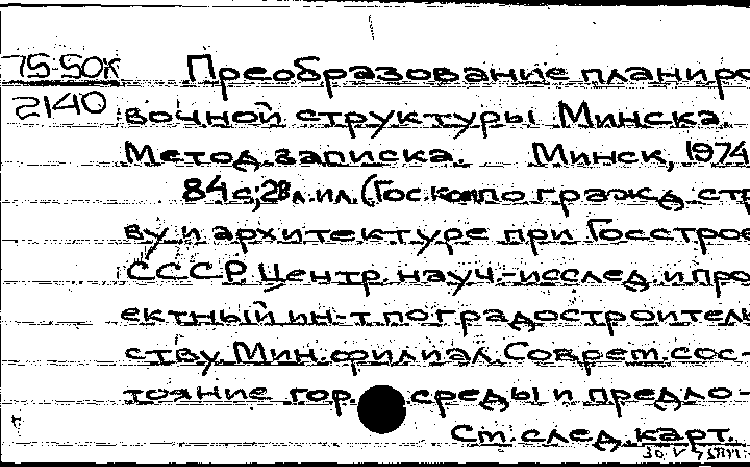 75-50к
2140
Преобразование планиро
вочной структуры Минска.
Метод. записка. Минск, 1974
84 с; 28 л. ил. (Гос. ком. по гражд. стр
ву и архитектуре при Госстрое
СССР. Центр. науч.-исслед. и про
ектный ин-т по градостроитель
ству. Мин. филиал. Соврем. сос-
тояние гор. среды и предло-
См. след. карт.